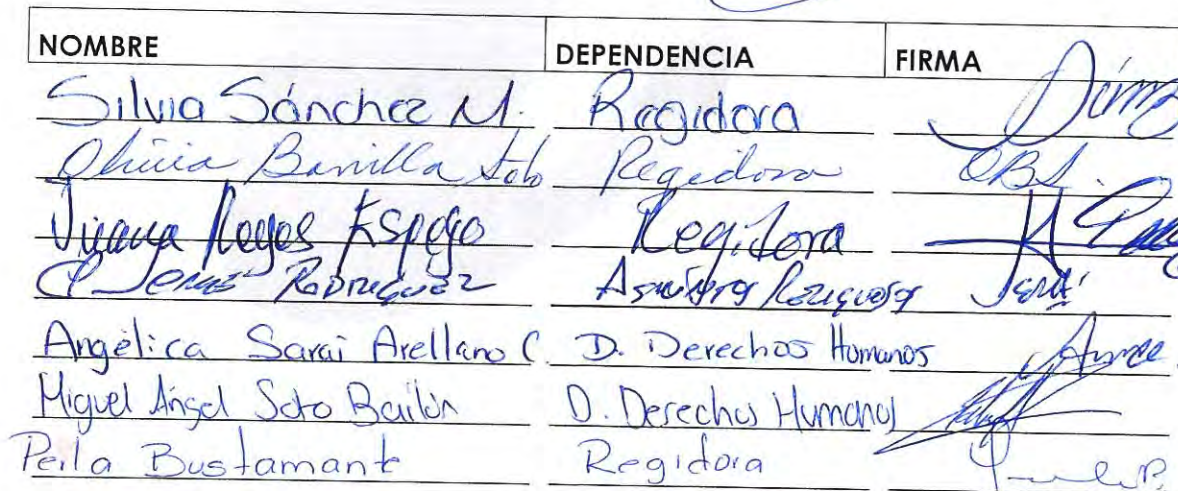 NOMBRE DEPENDENCIA FIRMA
Silvia Sánchez M. Regidora
Olivia Bonilla Soto Regidora OBS.
Juana Reyes Espejo Regidora
Rodriguez
Angélica Sarai Arellano C. D. Derechos Humanos
Miguel Angel Soto Bailón D. Derechos Humanos
Perla Bustamante Regidora